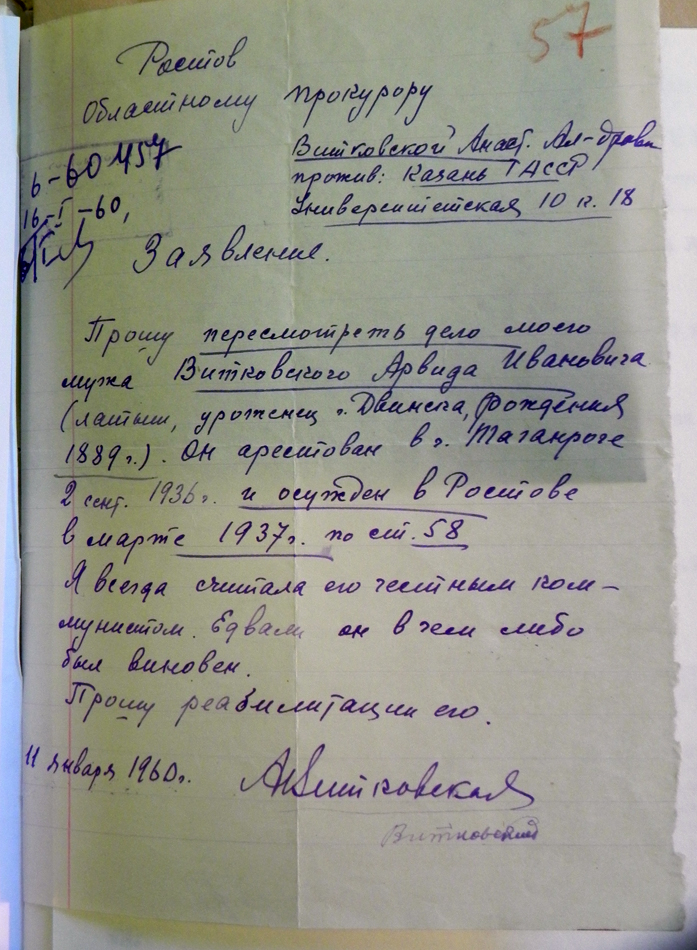 57
Ростов
Областному прокурору
6-60457
16-I-60,
Витковской Анаст. Ал-дровн
прожив: Казань ТАССР
Университетская 10 к. 18
Заявление.
Прошу пересмотреть дело моего
мужа Витковского Арвида Ивановича
(латыш, уроженец г. Двинска, рождения
1889 г.). Он арестован в г. Таганроге
2 сент. 1936 г. и осужден в Ростове
в марте 1937 г. по ст. 58
Я всегда считала его честным ком-
мунистом. Едвали он в чем либо
был виновен.
Прошу реабилитации его.
11 января 1960 г. АВитковская